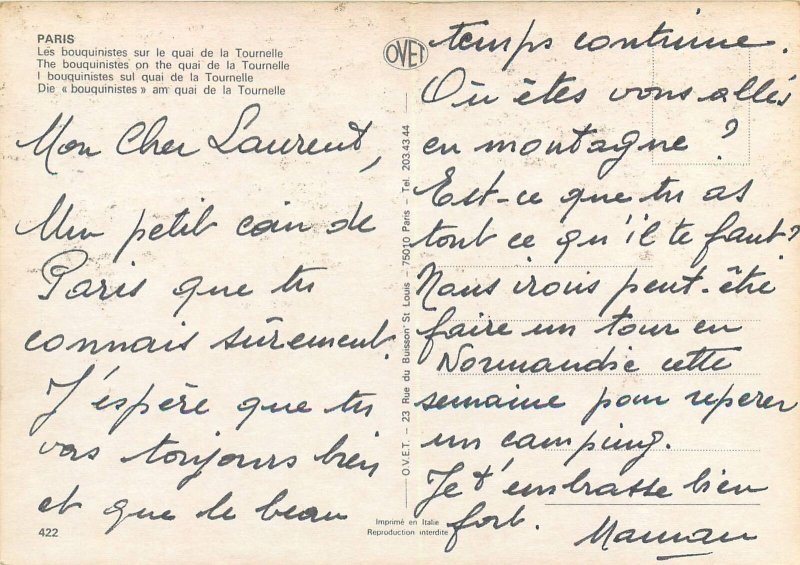 PARIS
Les bouquinistes sur le quai de la Tournelle
The bouquinistes on the quai de la Tournelle
I bouquinistes sul quai de la Tournelle
Die « bouquinistes » am quai de la Tournelle
OVET
Mon Cher Laurent,
Un petit coin de
Paris que tu
connais sûrement.
J'espère que tu
vas toujours bien
et que le beau
temps continue.
Où êtes vous allés
en montagne ?
Est-ce que tu as
tout ce qu'il te faut ?
Nous irons peut-être
faire un tour en
Normandie cette
semaine pour reperer
un camping.
Je t'embrasse bien
fort.
Maman
O.V.E.T. – 23 Rue du Buisson St Louis – 75010 Paris – Tel. 203.43 44
422
Imprimé en Italie
Reproduction interdite